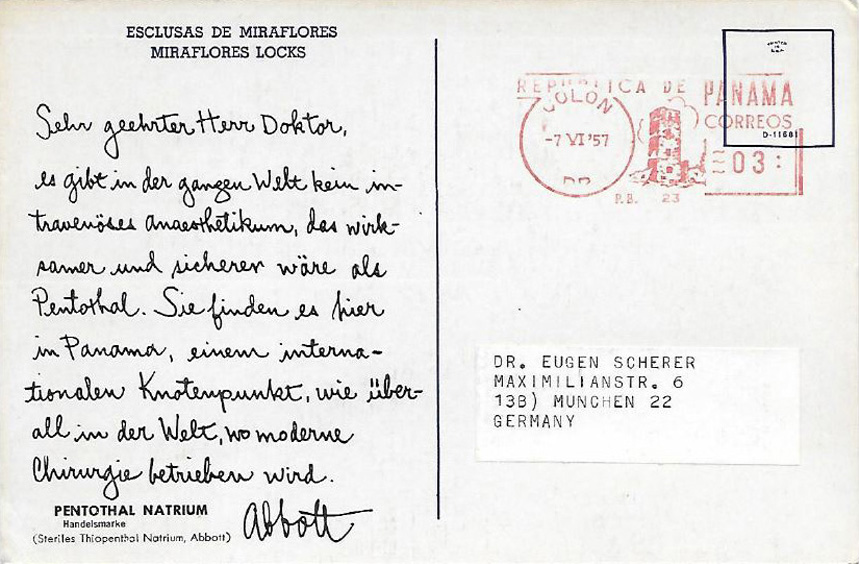 ESCLUSAS DE MIRAFLORES
MIRAFLORES LOCKS
Sehr geehrter Herr Doktor,
es gibt in der ganzen Welt kein in-
travenöses Anaesthetikum, das wirk-
samer und sicherer wäre als
Pentothal. Sie finden es hier
in Panama, einem interna-
tionalen Knotenpunkt, wie über-
all in der Welt, wo moderne
Chirurgie betrieben wird.
Abbott
PENTOTHAL NATRIUM
Handelsmarke
(Steriles Thiopenthal Natrium, Abbott)
REPUBLICA DE PANAMA
CORREOS
COLON
-7 VI '57
03:
P.B. 23
D-11681
DR. EUGEN SCHERER
MAXIMILIANSTR. 6
13B) MUNCHEN 22
GERMANY